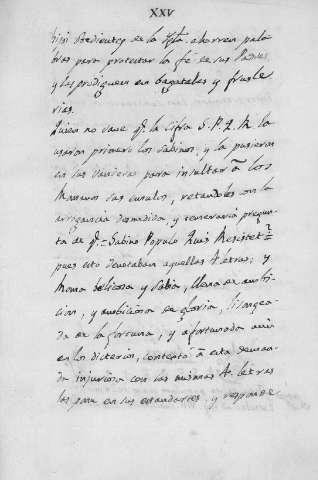 XXV
hijos obedientes de la Yglª ahorren pala
bras para protestar la fe de sus Padres
y las prodiguen en bagatelas y frusle
rias.
Quien no save qᵉ la cifra S. P. Q. R. la
usaron primero los Sabinos, y la pusieron
en sus vanderas para insultar â los
Romanos sus emulos, retandoles con la
arrogancia desmedida y temeraria pregun
ta de qⁿ Sabino Populo Quis Resistet?
pues esto denotaban aquellas 4 letras; y
Roma belicosa y sabia, llena de ambi
cion, y ambiciosa de gloria, lisongea
da de la fortuna, y afortunada aun
en los dicterios, contestó â esta deman
da injuriosa con las mismas 4. letras
las para en sus estandartes, y responde